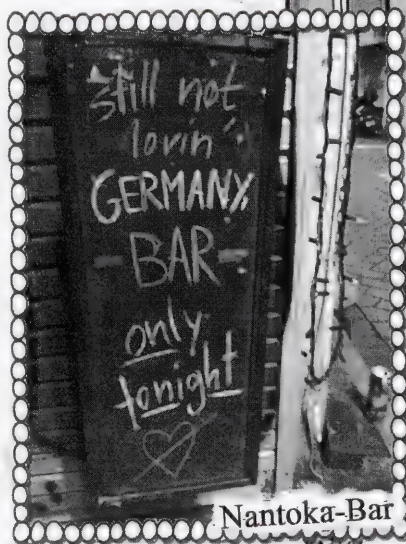 still not
lovin'
GERMANY,
-BAR-
only
tonight
Nantoka-Bar